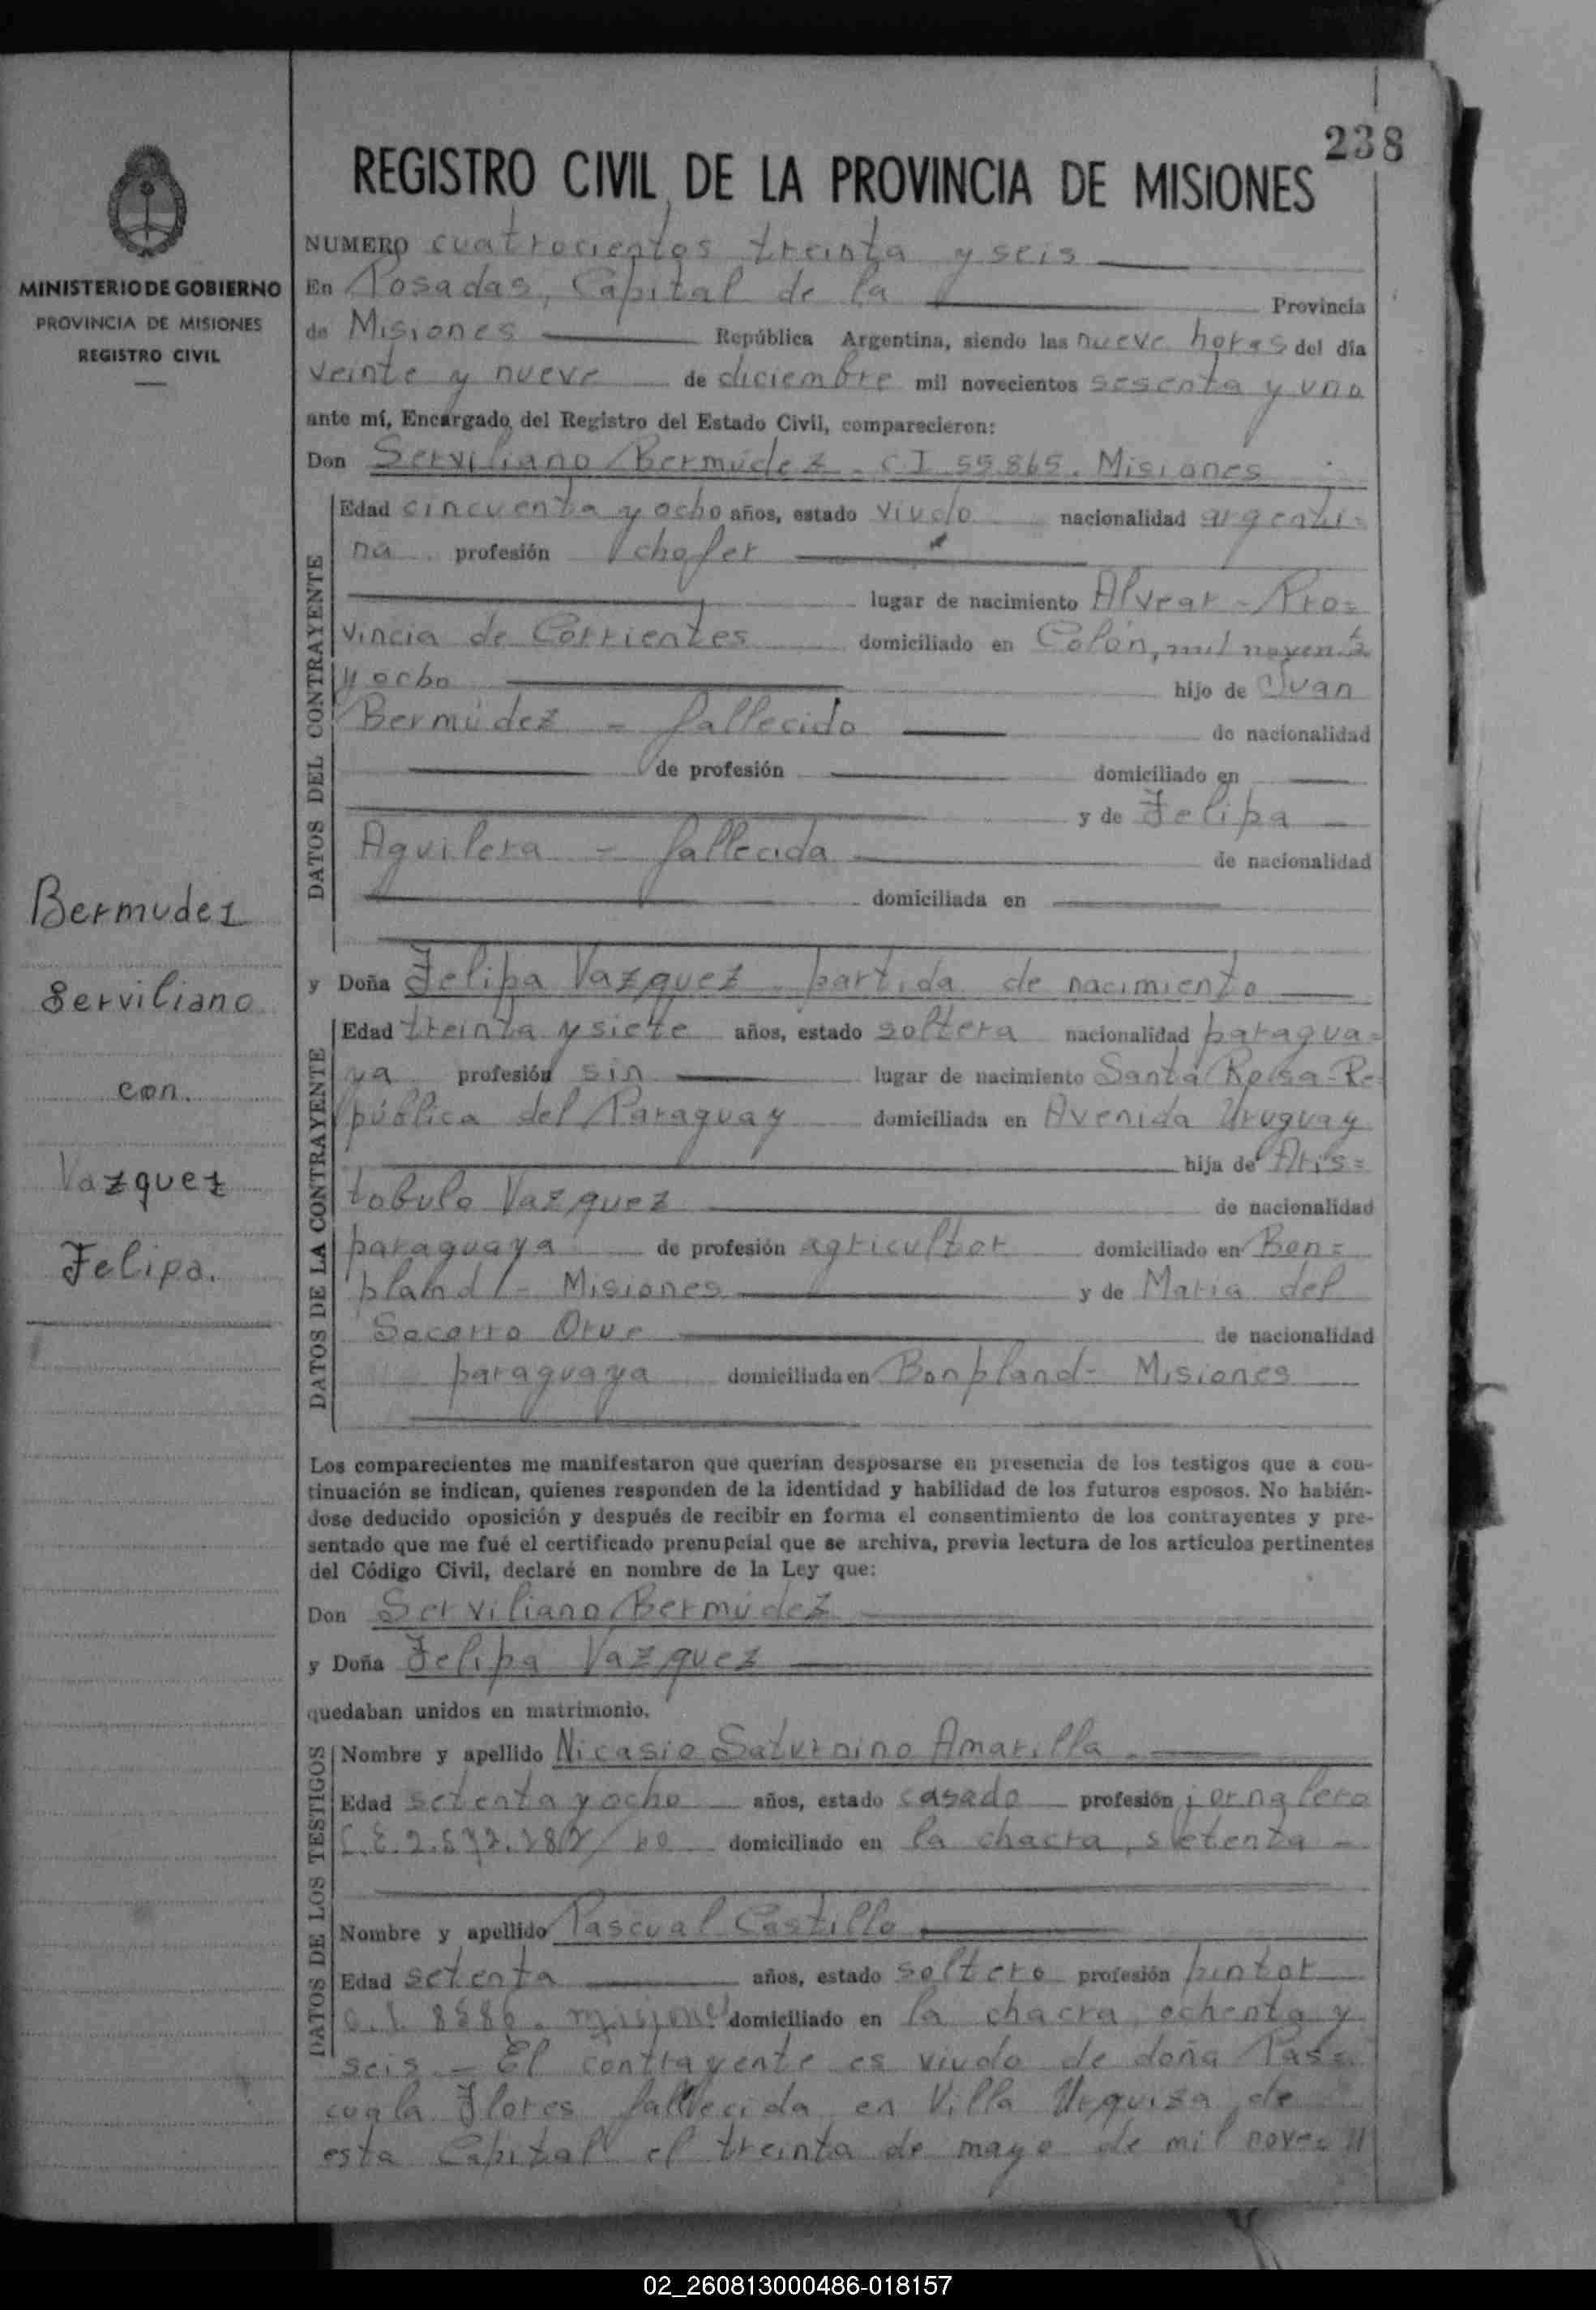 238
REGISTRO CIVIL DE LA PROVINCIA DE MISIONES
MINISTERIO DE GOBIERNO
PROVINCIA DE MISIONES
REGISTRO CIVIL
Bermudez
Serviliano
con
Vazquez
Felipa.
NUMERO cuatrocientos treinta y seis
En Posadas, Capital de la Provincia
de Misiones República Argentina, siendo las nueve horas del día
veinte y nueve de diciembre mil novecientos sesenta y uno
ante mí, Encargado del Registro del Estado Civil, comparecieron:
Don Serviliano Bermúdez - C.I 55865. Misiones
DATOS DEL CONTRAYENTE
Edad cincuenta y ocho años, estado viudo nacionalidad argenti=
na profesión chofer
lugar de nacimiento Alvear - Pro=
vincia de Corrientes domiciliado en Colón, mil noventa
y ocho hijo de Juan
Bermúdez - fallecido de nacionalidad
de profesión domiciliado en
y de Felipa
Aguilera - fallecida de nacionalidad
domiciliada en
y Doña Felipa Vazquez - partida de nacimiento
DATOS DE LA CONTRAYENTE
Edad treinta y siete años, estado soltera nacionalidad paragua=
ya profesión sin lugar de nacimiento Santa Rosa - Re=
pública del Paraguay domiciliada en Avenida Uruguay
hija de Aris=
tobulo Vazquez de nacionalidad
paraguaya de profesión agricultor domiciliado en Bon=
pland - Misiones y de Maria del
Socorro Orue de nacionalidad
paraguaya domiciliada en Bonpland - Misiones
Los comparecientes me manifestaron que querían desposarse en presencia de los testigos que a con-
tinuación se indican, quienes responden de la identidad y habilidad de los futuros esposos. No habién-
dose deducido oposición y después de recibir en forma el consentimiento de los contrayentes y pre-
sentado que me fué el certificado prenupcial que se archiva, previa lectura de los artículos pertinentes
del Código Civil, declaré en nombre de la Ley que:
Don Serviliano Bermúdez
y Doña Felipa Vazquez
quedaban unidos en matrimonio.
DATOS DE LOS TESTIGOS
Nombre y apellido Nicasio Saturnino Amarilla
Edad setenta y ocho años, estado casado profesión jornalero
domiciliado en la chacra setenta -
Nombre y apellido Pascual Castillo
Edad setenta años, estado soltero profesión pintor
c.I. Misiones domiciliado en la chacra ochenta y
seis - El contrayente es viudo de doña Pas=
cuala Flores fallecida en Villa Urquiza de
esta Capital el treinta de mayo de mil nove= //
02_260813000486-018157